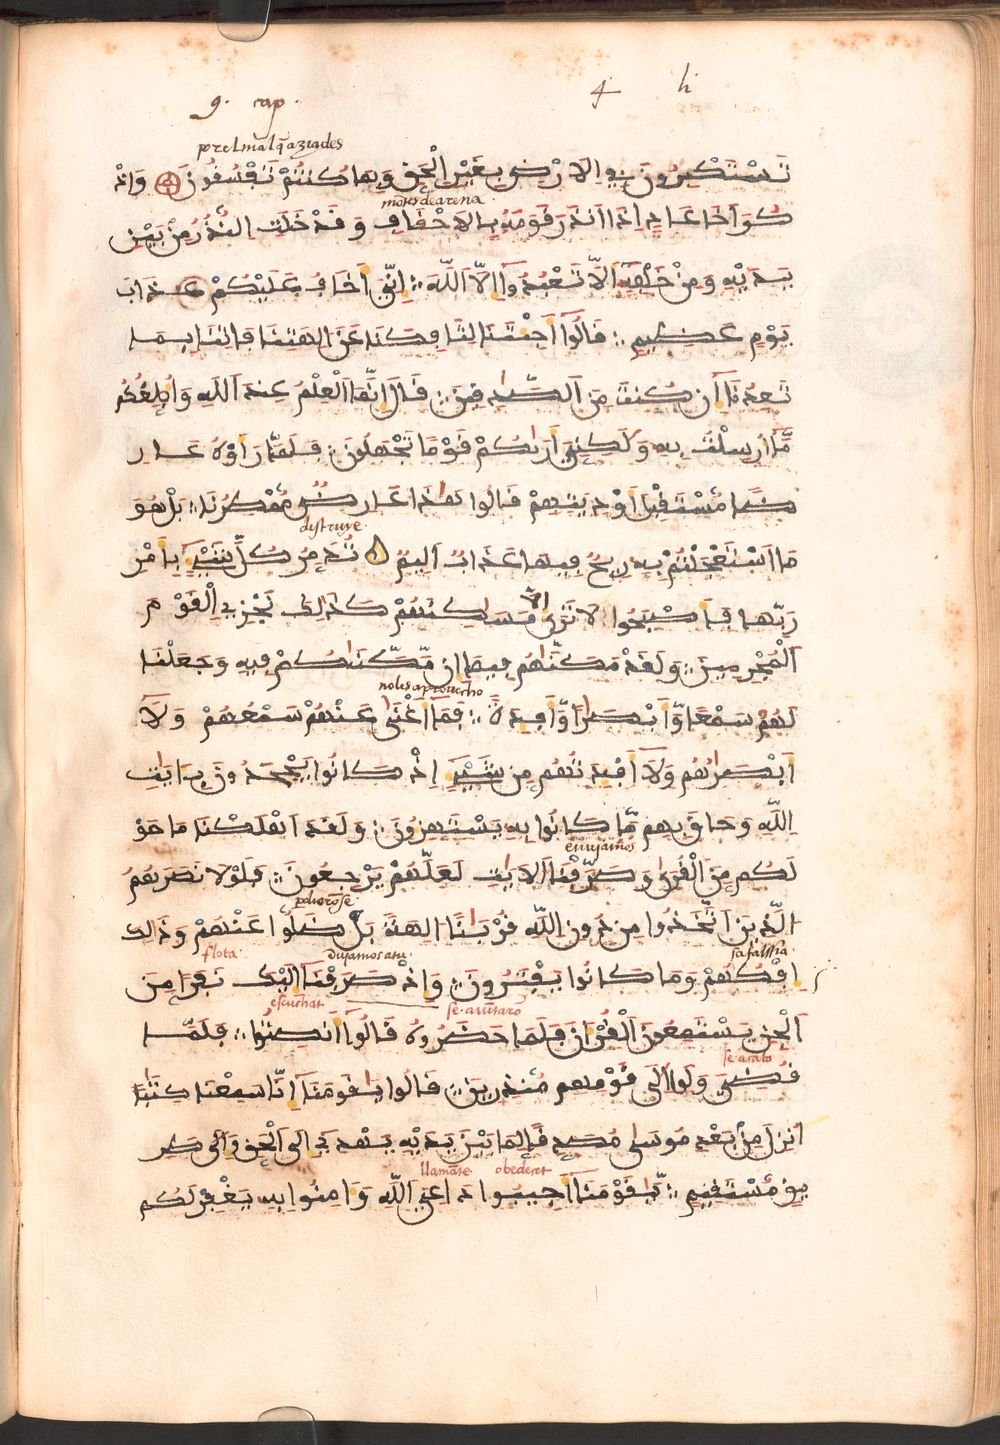 9. cap. 4 li
por el mal q̃ aziades
تَسْتَكْبِرُونَ فِي الَارْضِ بِغَيْرِ الْحَقِّ وَبِمَا كُنتُمْ تَفْسُقُونَ وَاذْ
montes de arena
كُرَ اَخَا عَادٍ اِذَ اَنذَرَ قَوْمَهُ بِالَاحْقَافِ وَقَدْ خَلَتِ النُّذُرُ مِنْ بَيْنِ
يَدَيْهِ وَمِنْ خَلْفِهِ أَلاَّ تَعْبُدُوا إِلاَّ اللَّهَ اِنِّي أَخَافُ عَلَيْكُمْ عَذَابَ
يَوْمٍ عَظِيمٍ قَالُوا أَجِئْتَنَا لِتَافِكَنَا عَنَ الِهَتِنَا فَاتِنَا بِمَا
تَعِدُنَا إِن كُنتَ مِنَ الصَّـٰدِقِينَ قَالَ اِنَّمَا الْعِلْمُ عِندَ اللَّهِ وَأُبَلِّغُكُم
مَّا أُرْسِلْتُ بِهِ وَلَـٰكِنِّي أَرَىٰكُمْ قَوْمًا تَجْهَلُونَ فَلَمَّا رَأَوْهُ عَارِ
ضًا مُّسْتَقْبِلَ أَوْدِيَتِهِمْ قَالُوا هَـٰذَا عَارِضٌ مُّمْطِرُنَا بَلْ هُوَ
destruye
مَا اَسْتَعْجَلْتُم بِهِ رِيحٌ فِيهَا عَذَابٌ اَلِيمٌ تُدَمِّرُ كُلَّ شَيْءٍ بِأَمْرِ
رَبِّهَا فَأَصْبَحُوا لَا تَرَى إِلاَّ مَسَـٰكِنَهُمْ كَذَلِكَ نَجْزِي الْقَوْمَ
الْمُجْرِمِينَ وَلَقَدْ مَكَّنَّـٰهُمْ فِيمَا إِن مَّكَّنَّـٰكُمْ فِيهِ وَجَعَلْنَا
noles aprovecho
لَهُمْ سَمْعًا وَّأَبْصَـٰرًا وَّأَفْئِدَةً فَمَا أَغْنَىٰ عَنْهُمْ سَمْعُهُمْ وَلَا
أَبْصَـٰرُهُمْ وَلَا أَفْئِدَتُهُم مِن شَيْءٍ اِذْ كَانُوا يَجْحَدُونَ بِـَٔايَـٰتِ
اللَّهِ وَحَاقَ بِهِم مَّا كَانُوا بِهِ يَسْتَهْزِءُونَ وَلَقَدَ اَهْلَكْنَا مَا حَوْ
enviamos
لَكُم مِنَ الْقُرَىٰ وَصَرَّفْنَا الَايَـٰتِ لَعَلَّهُمْ يَرْجِعُونَ فَلَوْلَا نَصَرَهُمُ
الَّذِينَ اَتَّخَذُوا مِن دُونِ اللَّهِ قُرْبَانًا اَلِهَةً بَلْ ضَلُّوا عَنْهُمْ وَذَالِكَ
flota duiamos atu sa falssia
اِفْكُهُمْ وَمَا كَانُوا يَفْتَرُونَ وَاِذْ صَرَفْنَا إِلَيْكَ نَفَرًا مِنَ
escuchat
الْجِنِّ يَسْتَمِعُونَ الْقُرْءَانَ فَلَمَّا حَضَرُوهُ قَالُوا أَنصِتُوا فَلَمَّا
قُضِيَ وَلَّوِا اِلَىٰ قَوْمِهِم مُّنذِرِينَ قَالُوا يَـٰقَوْمَنَا إِنَّا سَمِعْنَا كِتَـٰبًا
أُنزِلَ مِن بَعْدِ مُوسَىٰ مُصَدِّقًا لِمَا بَيْنَ يَدَيْهِ يَهْدِي إِلَى الْحَقِّ وَإِلَىٰ طَرِ
obedecet
يقٍ مُّسْتَقِيمٍ يَـٰقَوْمَنَا أَجِيبُوا دَاعِيَ اللَّهِ وَءَامِنُوا بِهِ يَغْفِرْ لَكُم